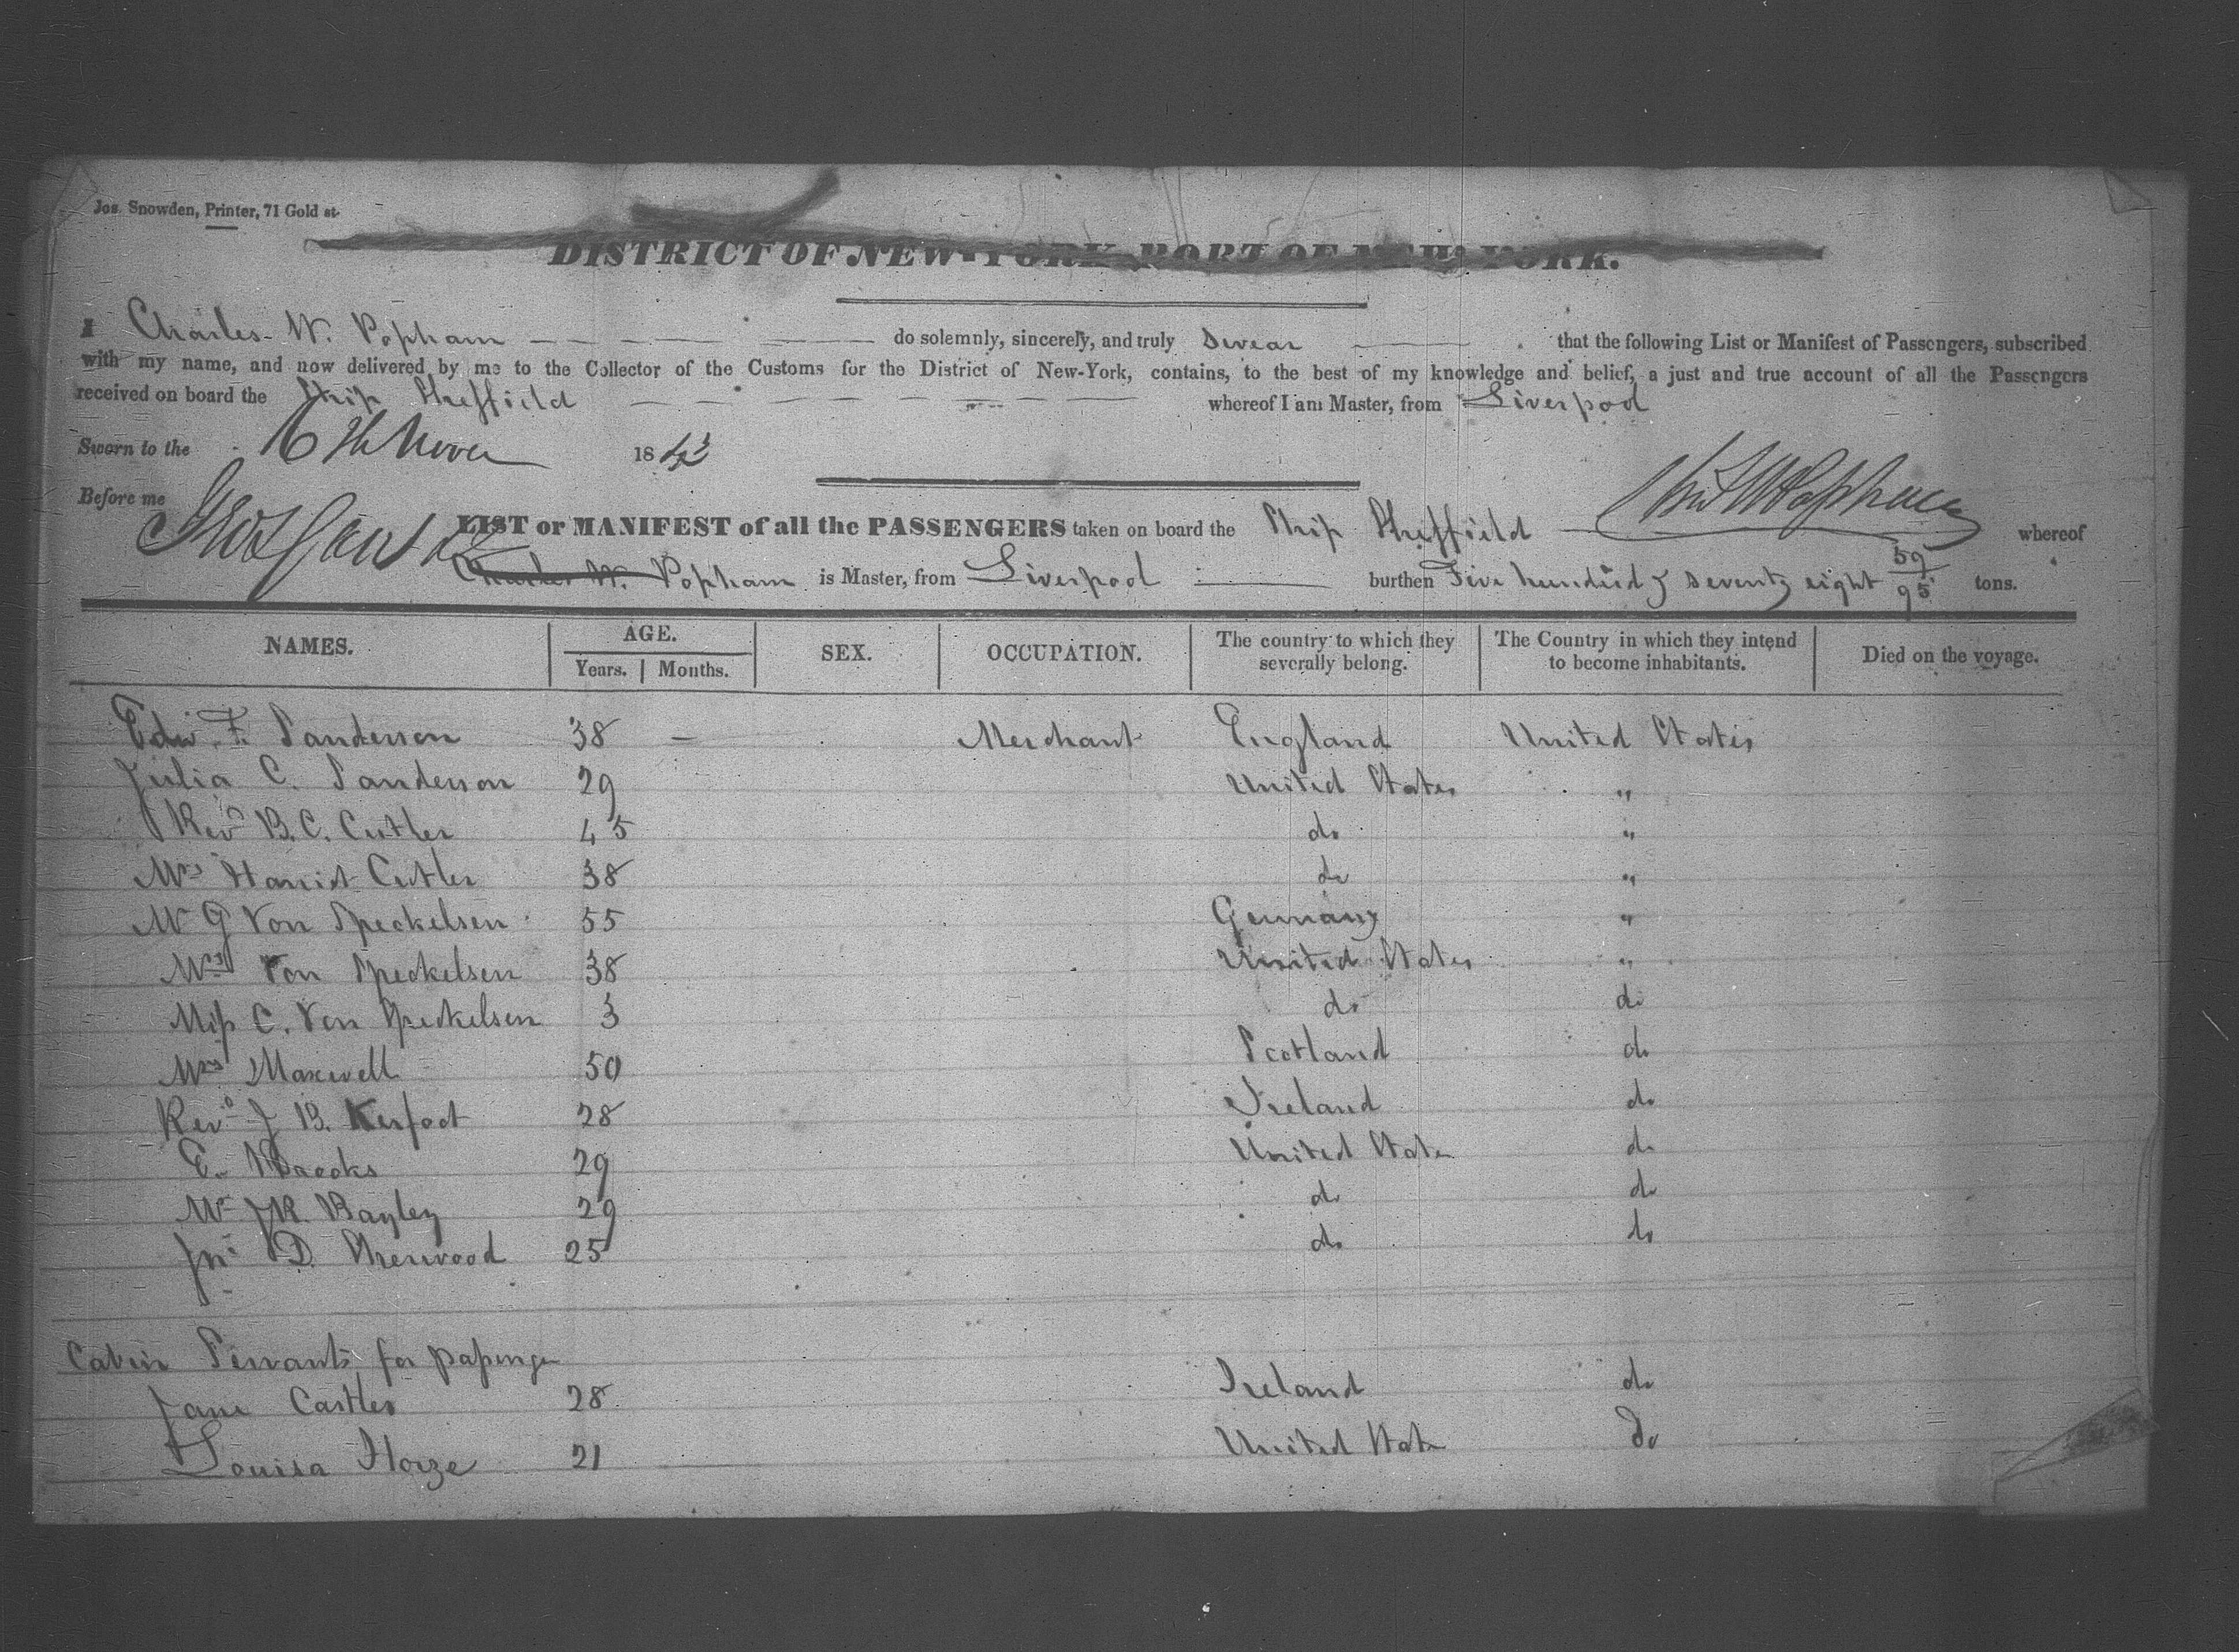 Jos. Snowden, Printer, 71 Gold st.
DISTRICT OF NEW-YORK, PORT OF NEW-YORK.
I Charles W. Popham do solemnly, sincerely, and truly swear that the following List or Manifest of Passengers, subscribed
with my name, and now delivered by me to the Collector of the Customs for the District of New-York, contains, to the best of my knowledge and belief, a just and true account of all the Passengers
received on board the Ship Sheffield whereof I am Master, from Liverpool
Sworn to the 6th Novr 1843
Before me
Chs W Popham
LIST or MANIFEST of all the PASSENGERS taken on board the Ship Sheffield whereof
Charles W. Popham is Master, from Liverpool burthen Five hundred & seventy eight 59/95 tons.
NAMES. AGE. Years. Months. SEX. OCCUPATION. The country to which they severally belong. The Country in which they intend to become inhabitants. Died on the voyage.
Edw. F. Sanderson 38 — Merchant England United States
Julia C. Sanderson 29 United States "
Revd B. C. Cutler 45 do "
Mrs Harriet Cutler 38 do "
Mr G Von Speckelsen 55 Germany "
Mrs Von Speckelsen 38 United States "
Miss C. Von Speckelsen 3 do do
Mrs Maxwell 50 Scotland do
Revd J B. Kerfoot 28 Ireland do
E. 29 United State do
Mr J R. Bayley 29 do do
Jno D. Sherwood 25 do do
Cabin Servants for passenger
Jane Castles 28 Ireland do
Louisa 21 United State Do